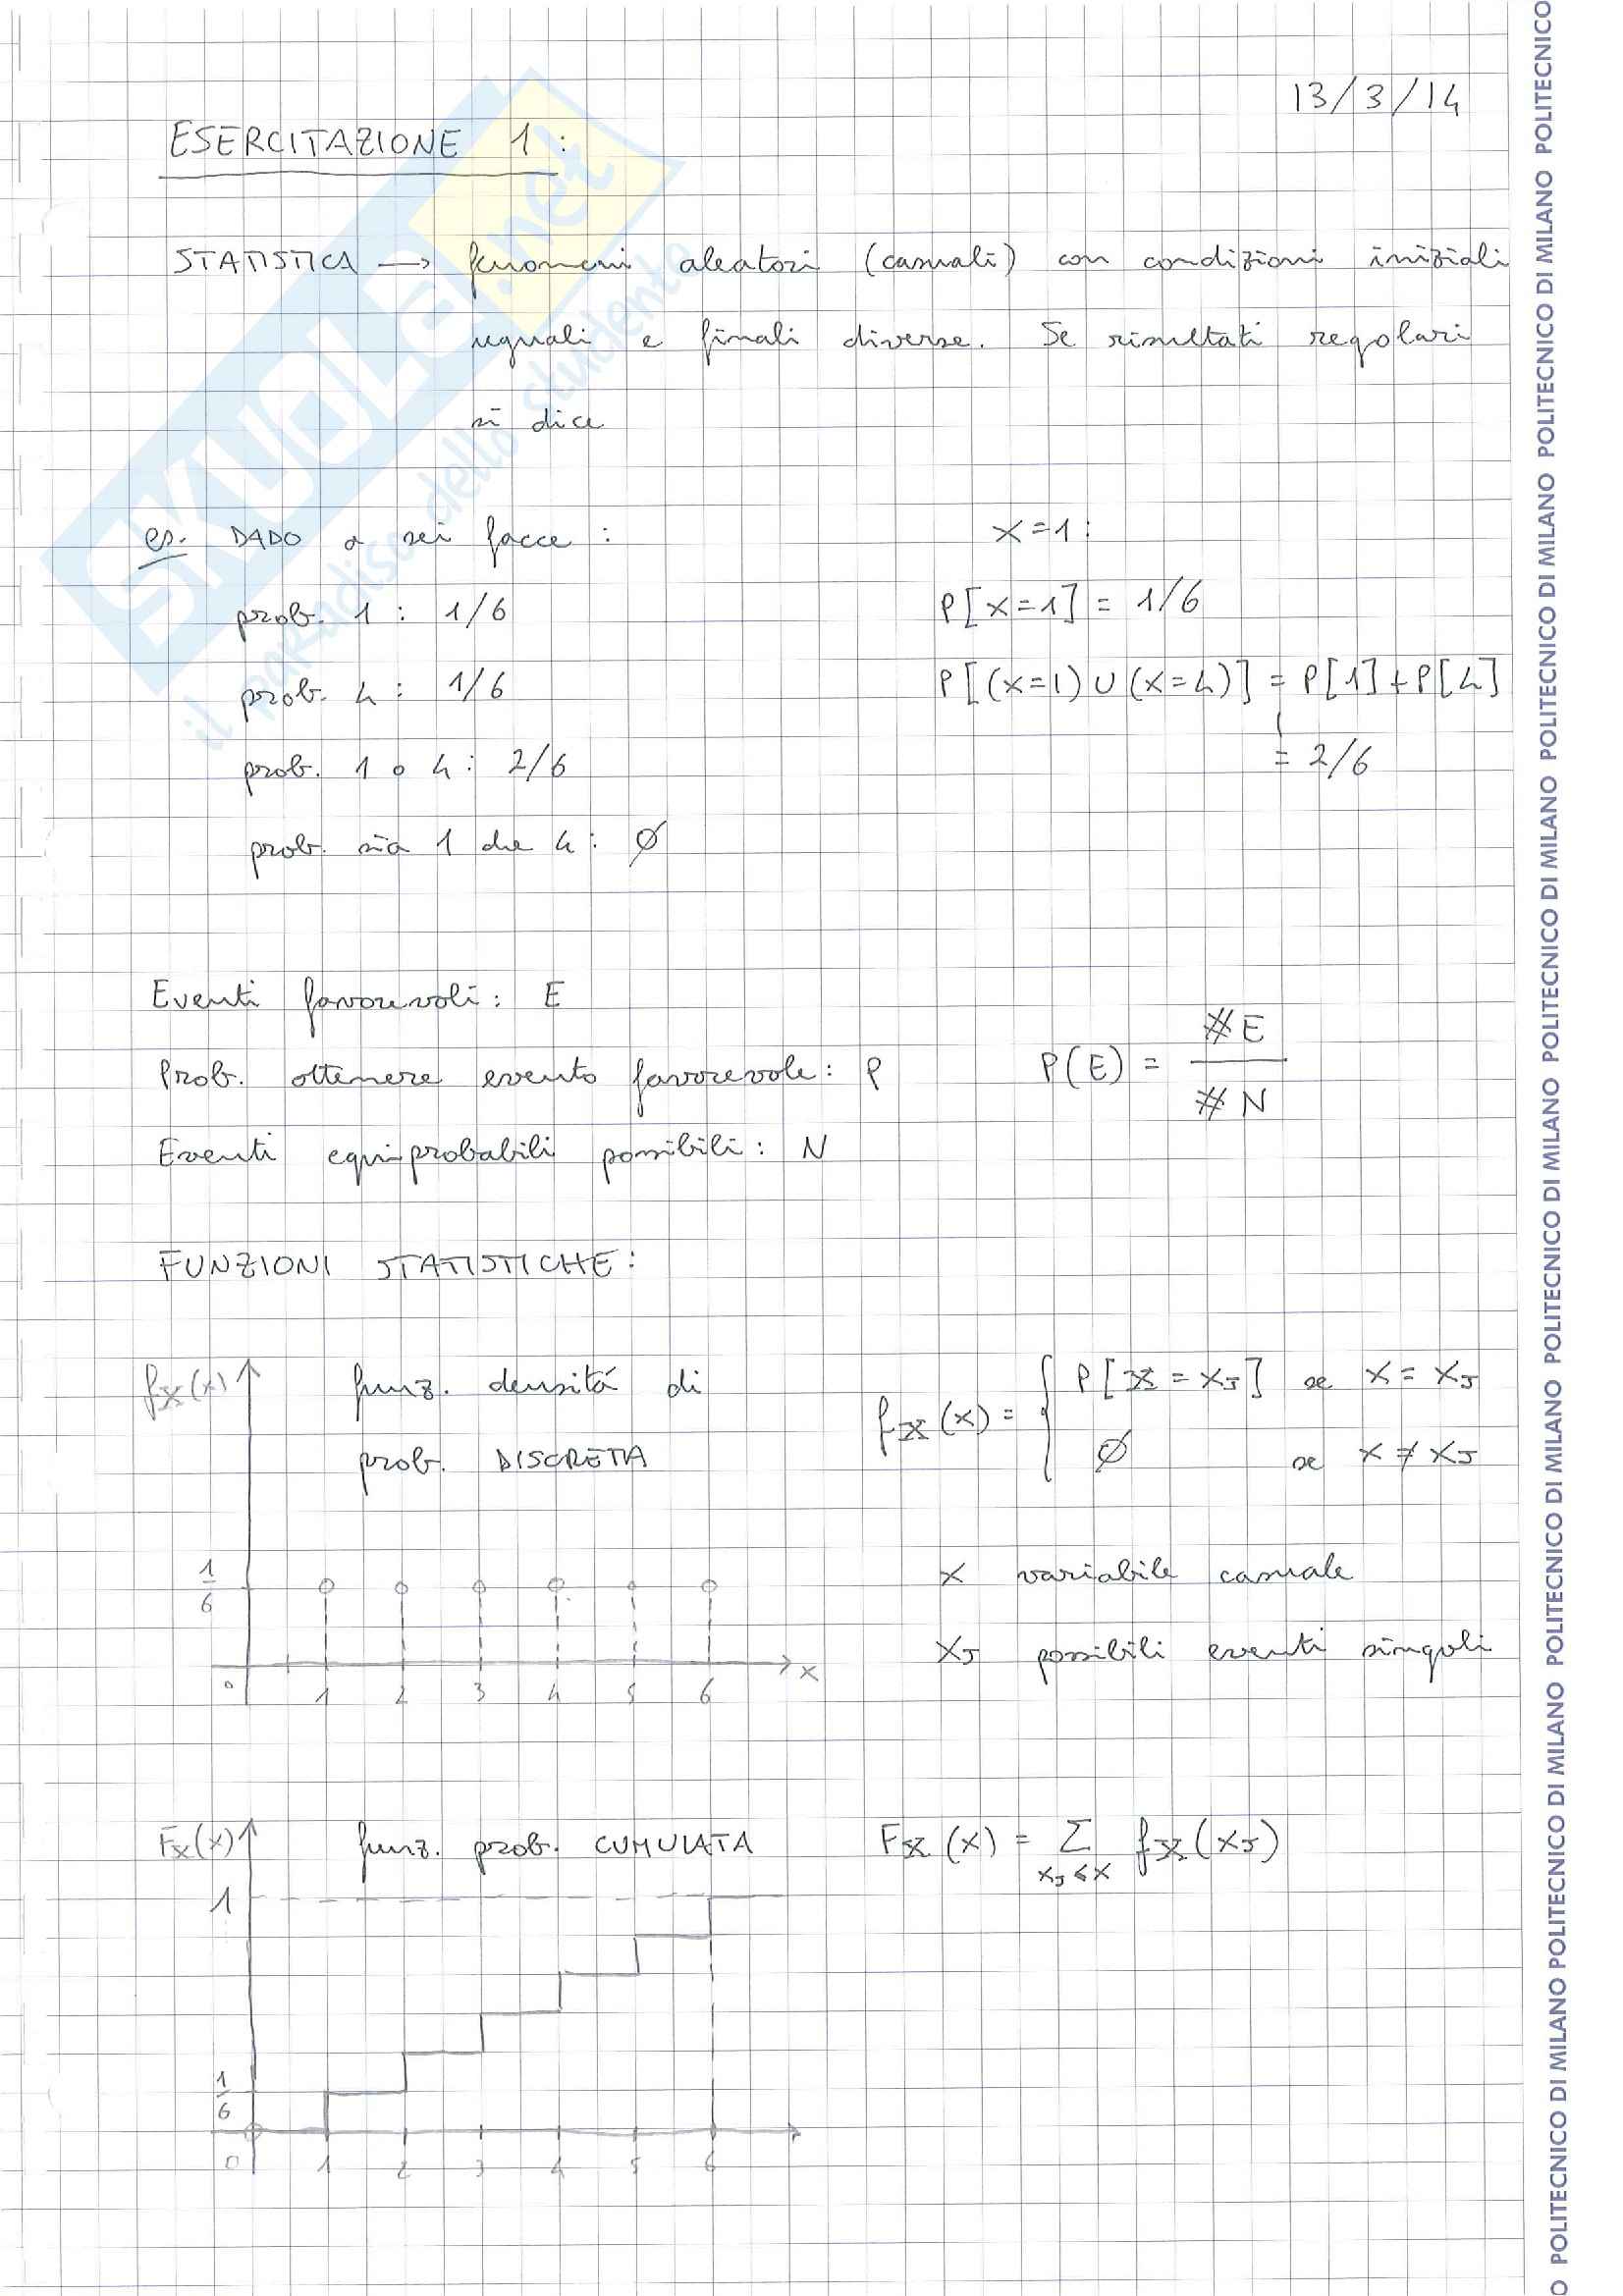 13/3/14
ESERCITAZIONE 1:
STATISTICA → fenomeni aleatori (casuali) con condizioni iniziali
uguali e finali diverse. Se risultati regolari
si dice
es. DADO a sei facce:
x=1:
prob. 1 : 1/6
P[x=1] = 1/6
prob. 4 : 1/6
P[(x=1)∪(x=4)] = P[1]+P[4]
prob. 1 o 4: 2/6
= 2/6
prob. sia 1 che 4: ∅
Eventi favorevoli: E
Prob. ottenere evento favorevole: P
P(E) = #E / #N
Eventi equiprobabili possibili: N
FUNZIONI STATISTICHE:
fX(x)
funz. densitá di
prob. DISCRETA
fX(x) = { P[X = xJ] se x = xJ
∅ se x ≠ xJ
1/6
x variabile casuale
xJ possibili eventi singoli
0 1 2 3 4 5 6 x
FX(x)
funz. prob. CUMULATA
FX(x) = Σ xJ ≤ x fX(xJ)
1
1/6
0 1 2 3 4 5 6
SKUOLA.net
il paradiso dello studente
POLITECNICO DI MILANO POLITECNICO DI MILANO POLITECNICO DI MILANO POLITECNICO DI MILANO POLITECNICO DI MILANO POLITECNICO DI MILANO POLITECNICO DI MILANO POLITECNICO